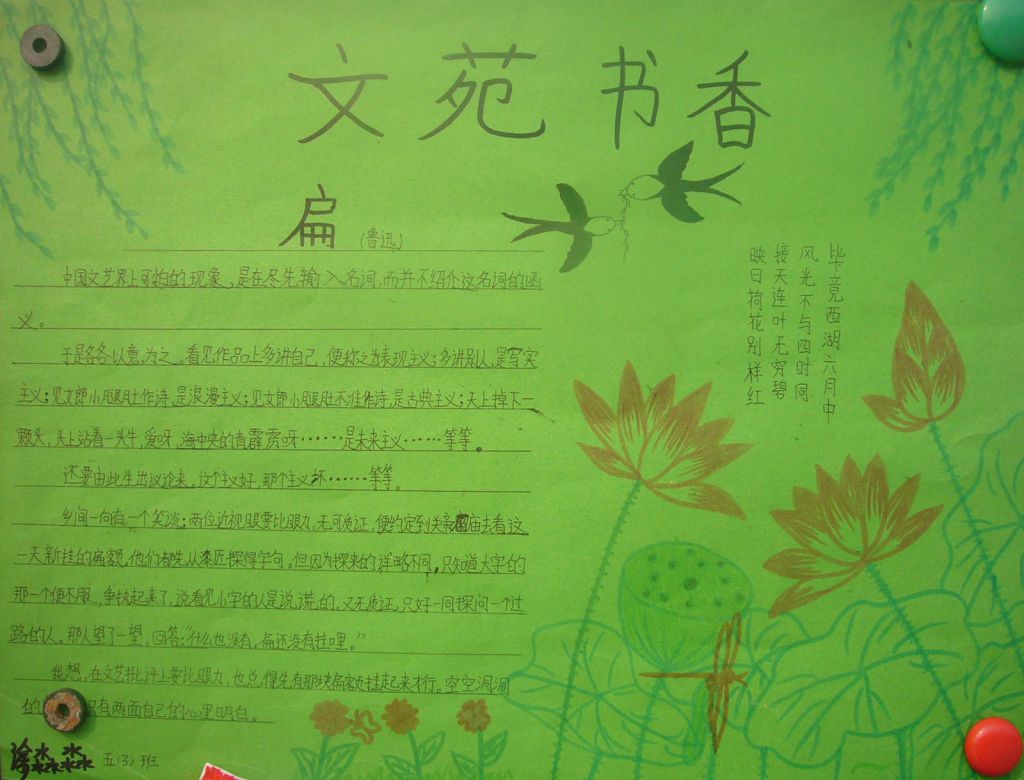 文苑书香
扁
(鲁迅)
中国文艺界上可怕的现象,是在尽先输入名词,而并不绍介这名词的函
义。
于是各各以意为之。看见作品上多讲自己,便称之为表现主义;多讲别人,是写实
主义;见女郎小腿肚作诗,是浪漫主义;见女郎小腿肚不准作诗,是古典主义;天上掉下一
颗头,头上站着一头牛,爱呀,海中央的青霹雳呀……是未来主义……等等。
还要由此生出议论来。这个主义好,那个主义坏……等等。
乡间一向有一个笑谈:两位近视眼要比眼力,无可质证,便约定到关帝庙去看这
一天新挂的扁额。他们都先从漆匠探得字句。但因为探来的详略不同,只知道大字的
那一个便不服,争执起来了,说看见小字的人是说谎的。又无质证,只好一同探问一个过
路的人。那人望了一望,回答:“什么也没有。扁还没有挂哩。”
我想,在文艺批评上要比眼力,也总得先有那块扁额挂起来才行。空空洞洞
的 只有两面自己的心里明白。
毕竟西湖六月中
风光不与四时同
接天连叶无穷碧
映日荷花别样红
五(3)班